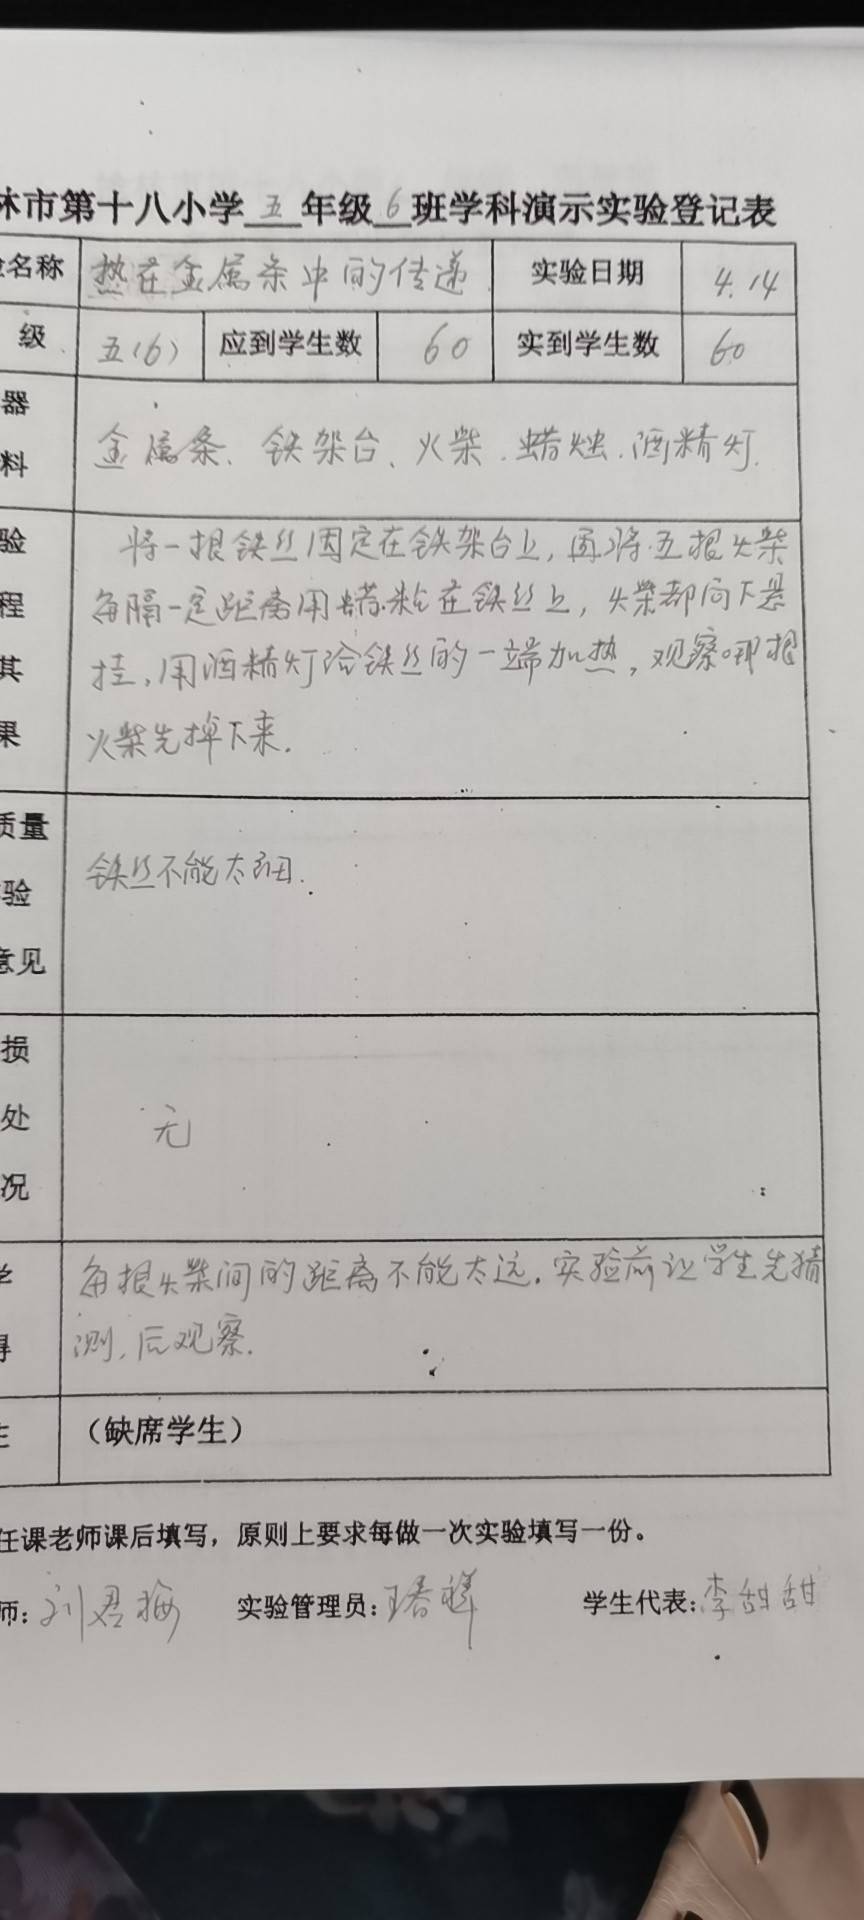 林市第十八小学 五 年级 6 班学科演示实验登记表
名称 热在金属条中的传递 实验日期 4.14
级 五(6) 应到学生数 60 实到学生数 60
器
金属条、铁架台、火柴、蜡烛、酒精灯.
料
验 将一根铁丝固定在铁架台上,再将五根火柴
程 每隔一定距离用蜡粘在铁丝上,火柴都向下悬
其 挂,用酒精灯给铁丝的一端加热,观察哪根
果 火柴先掉下来.
质量
铁丝不能太细.
验
意见
损
处 无
况
学 每根火柴间的距离不能太远.实验前让学生先猜
得 测,后观察.
(缺席学生)
任课老师课后填写,原则上要求每做一次实验填写一份。
师: 刘君梅 实验管理员: 学生代表: 李甜甜